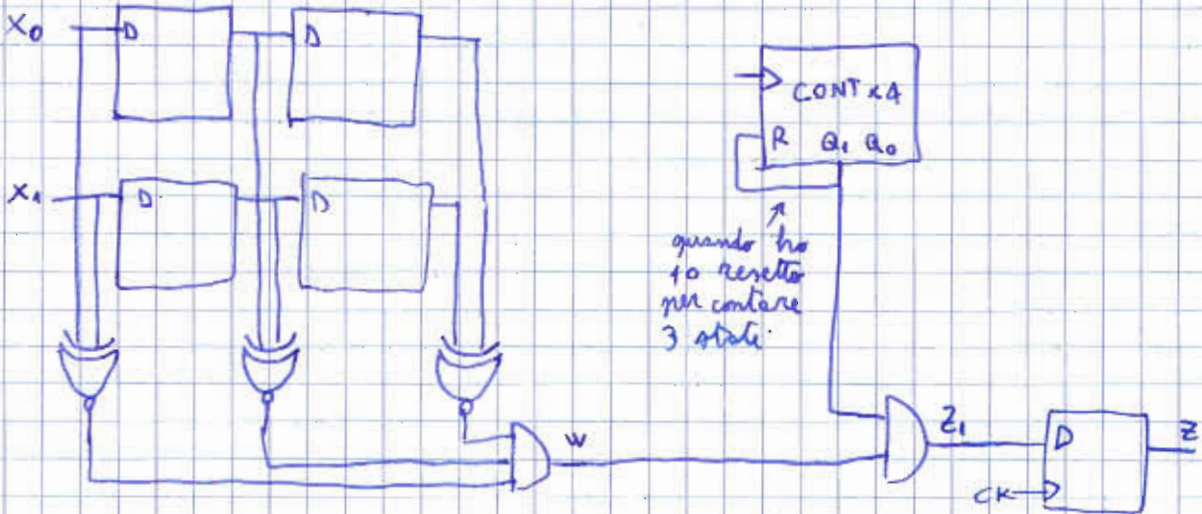 X0
D
D
CONT x4
R Q1 Q0
X1
D
D
quando ho
10 resetto
per contare
3 stati
W
Z1
D
Z
CK